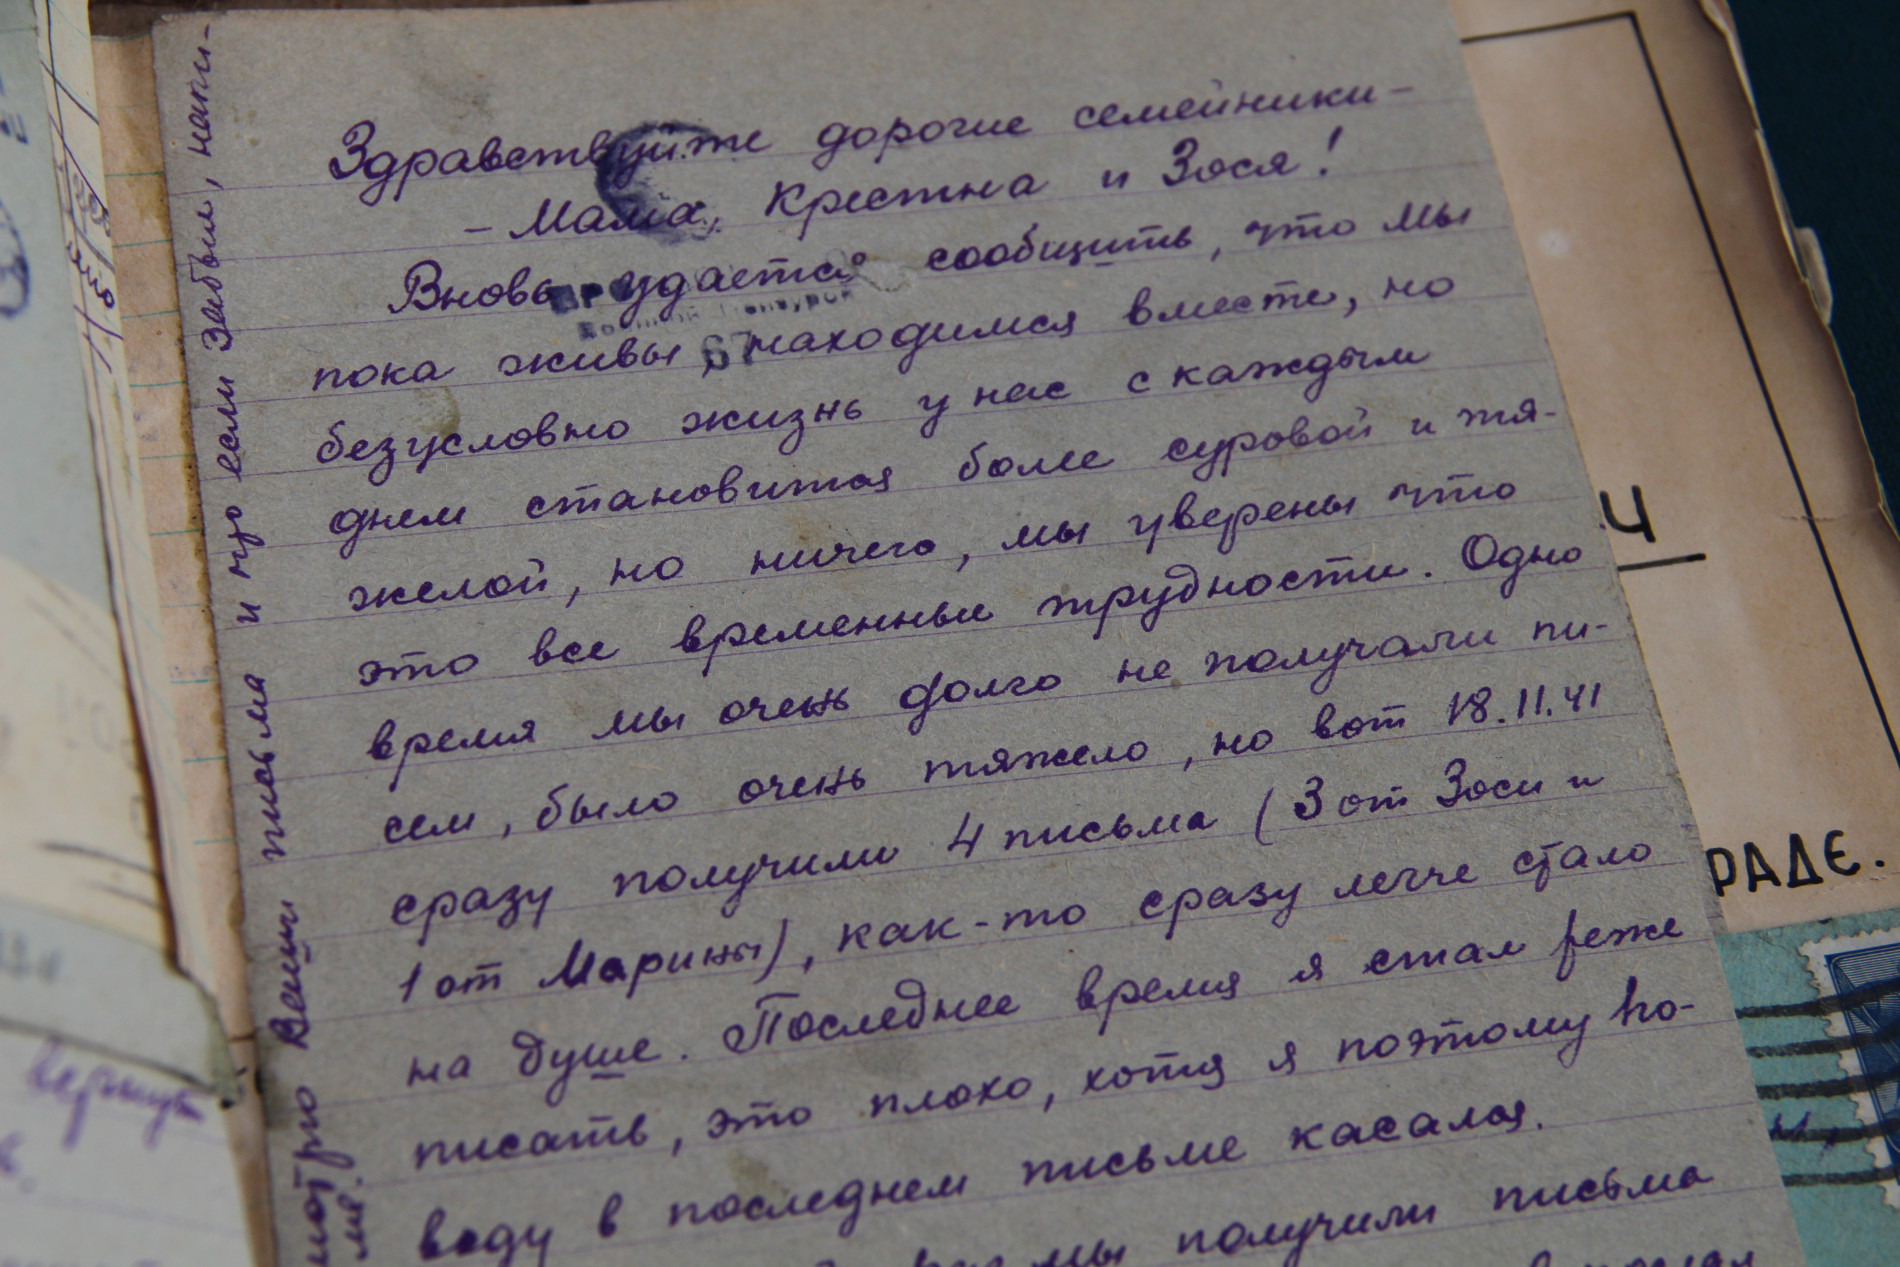 Здравствуйте дорогие семейники-
- Мама, Крестна и Зося!
Вновь удается сообщить, что мы
пока живы, находимся вместе, но
безусловно жизнь у нас с каждым
днем становится более суровой и тя-
желой, но ничего, мы уверены что
это все временные трудности. Одно
время мы очень долго не получали пи-
сем, было очень тяжело, но вот 18.11.41
сразу получили 4 письма (3 от Зоси и
1 от Марины), как-то сразу легче стало
на душе. Последнее время я стал реже
писать, это плохо, хотя я поэтому по-
воду в последнем письме касался.
мы получили письма
Ваши письма и что если забыл, напи-
67
Ч
РАДЕ.
вернут